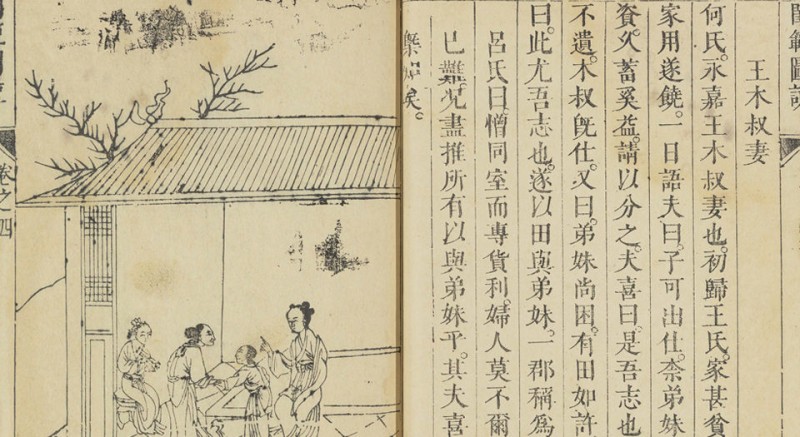 閨範圖
王木叔妻
何氏。永嘉王木叔妻也。初歸王氏。家甚貧
家用遂饒。一日語夫曰。子可出仕。柰弟妹
資。久蓄奚益。請以分之。夫喜曰。是吾志也
不遺。木叔旣仕。又曰。弟妹尚困。有田如許
曰。此尤吾志也。遂以田與弟妹。一郡稱爲
呂氏曰憎同室而專貨利。婦人莫不爾
已難。況盡推所有以與弟妹乎。其夫喜
矣。
卷之四